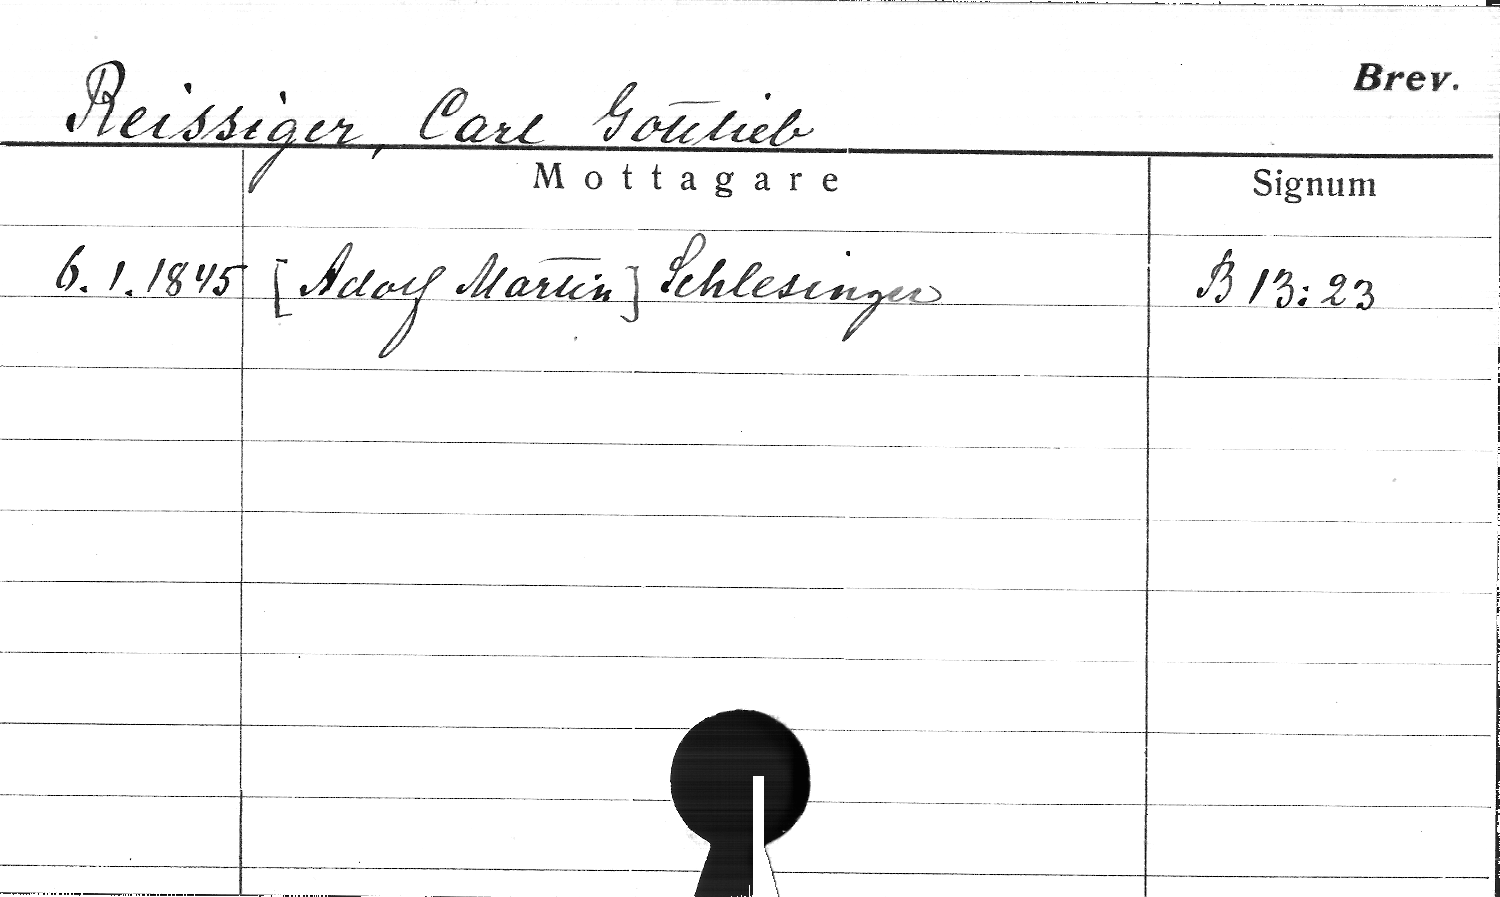 Brev.
Reissiger, Carl Gottlieb
Mottagare Signum
6. 1. 1845 [Adolf Martin] Schlesinger B 13:23